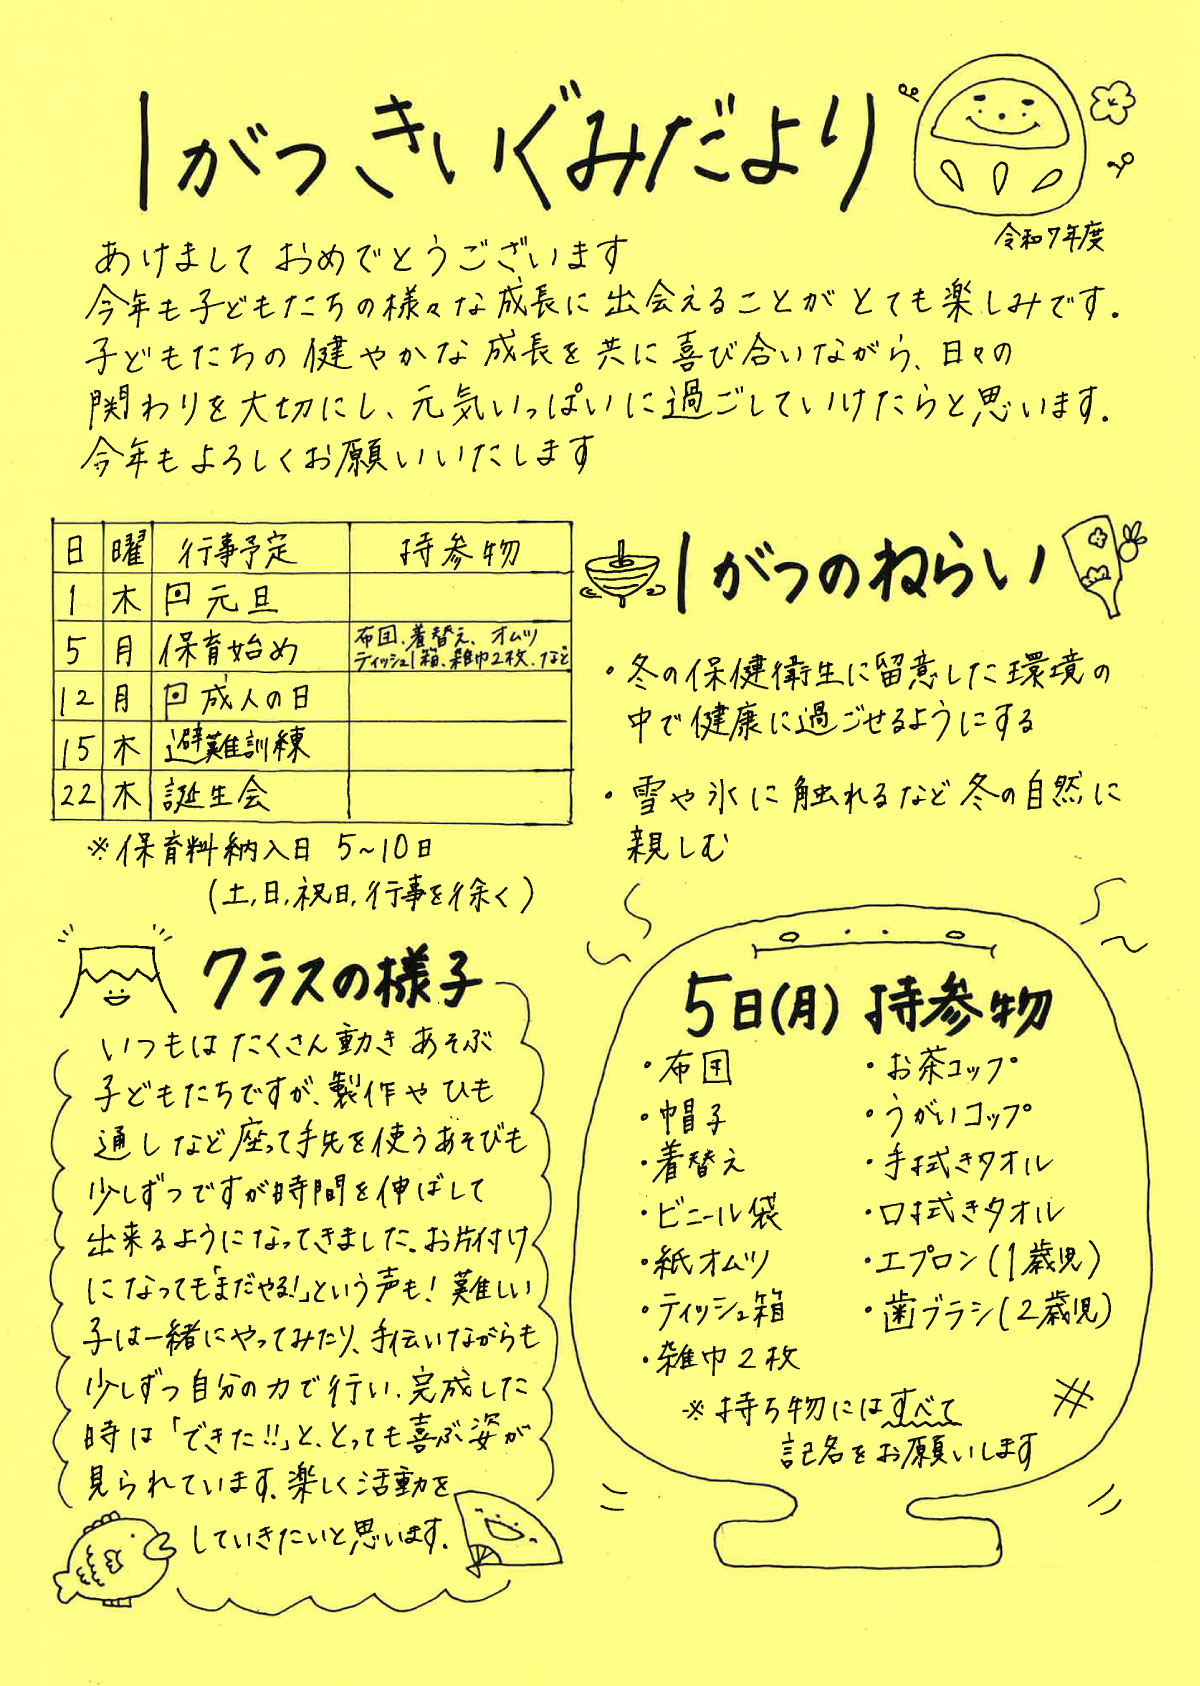 1がつ きいぐみだより
令和7年度
あけまして おめでとうございます
今年も子どもたちの様々な成長に出会えることがとても楽しみです。
子どもたちの健やかな成長を共に喜び合いながら、日々の
関わりを大切にし、元気いっぱいに過ごしていけたらと思います。
今年もよろしくお願いいたします
日 曜 行事予定 持参物
1 木 元旦
5 月 保育始め 布団、着替え、オムツ
ティッシュ1箱、雑巾2枚、など
12 月 成人の日
15 木 避難訓練
22 木 誕生会
※保育料納入日 5~10日
(土,日,祝日,行事を除く)
1がつのねらい
・冬の保健衛生に留意した環境の
中で健康に過ごせるようにする
・雪や氷に触れるなど冬の自然に
親しむ
クラスの様子
いつもは たくさん動き あそぶ
子どもたちですが、製作や ひも
通しなど座って手先を使うあそびも
少しずつですが時間を伸ばして
出来るようになってきました。お片付け
になっても「まだやる!」という声も!難しい
子は一緒にやってみたり、手伝いながらも
少しずつ自分の力で行い、完成した
時は「できた!!」と、とっても喜ぶ姿が
見られています。楽しく活動を
していきたいと思います。
5日(月) 持参物
・布団
・帽子
・着替え
・ビニール袋
・紙オムツ
・ティッシュ箱
・雑巾2枚
・お茶コップ
・うがいコップ
・手拭きタオル
・口拭きタオル
・エプロン(1歳児)
・歯ブラシ(2歳児)
※持ち物にはすべて
記名をお願いします